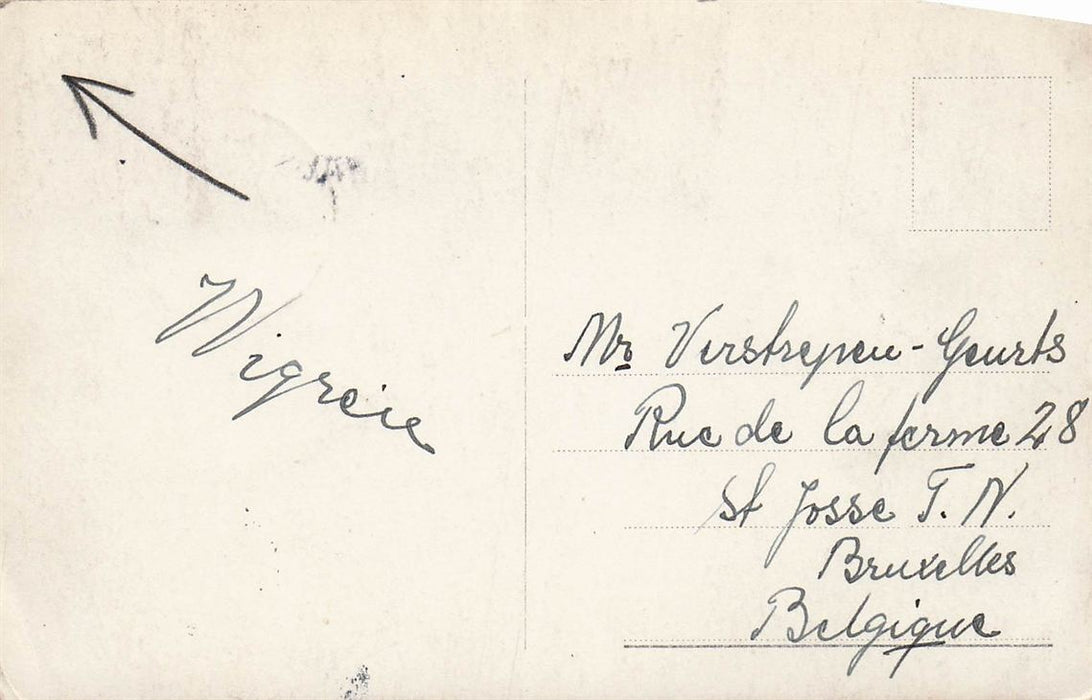 Mr Verstrepen-Geurts
Rue de la ferme 28
St Josse T. N.
Bruxelles
Belgique